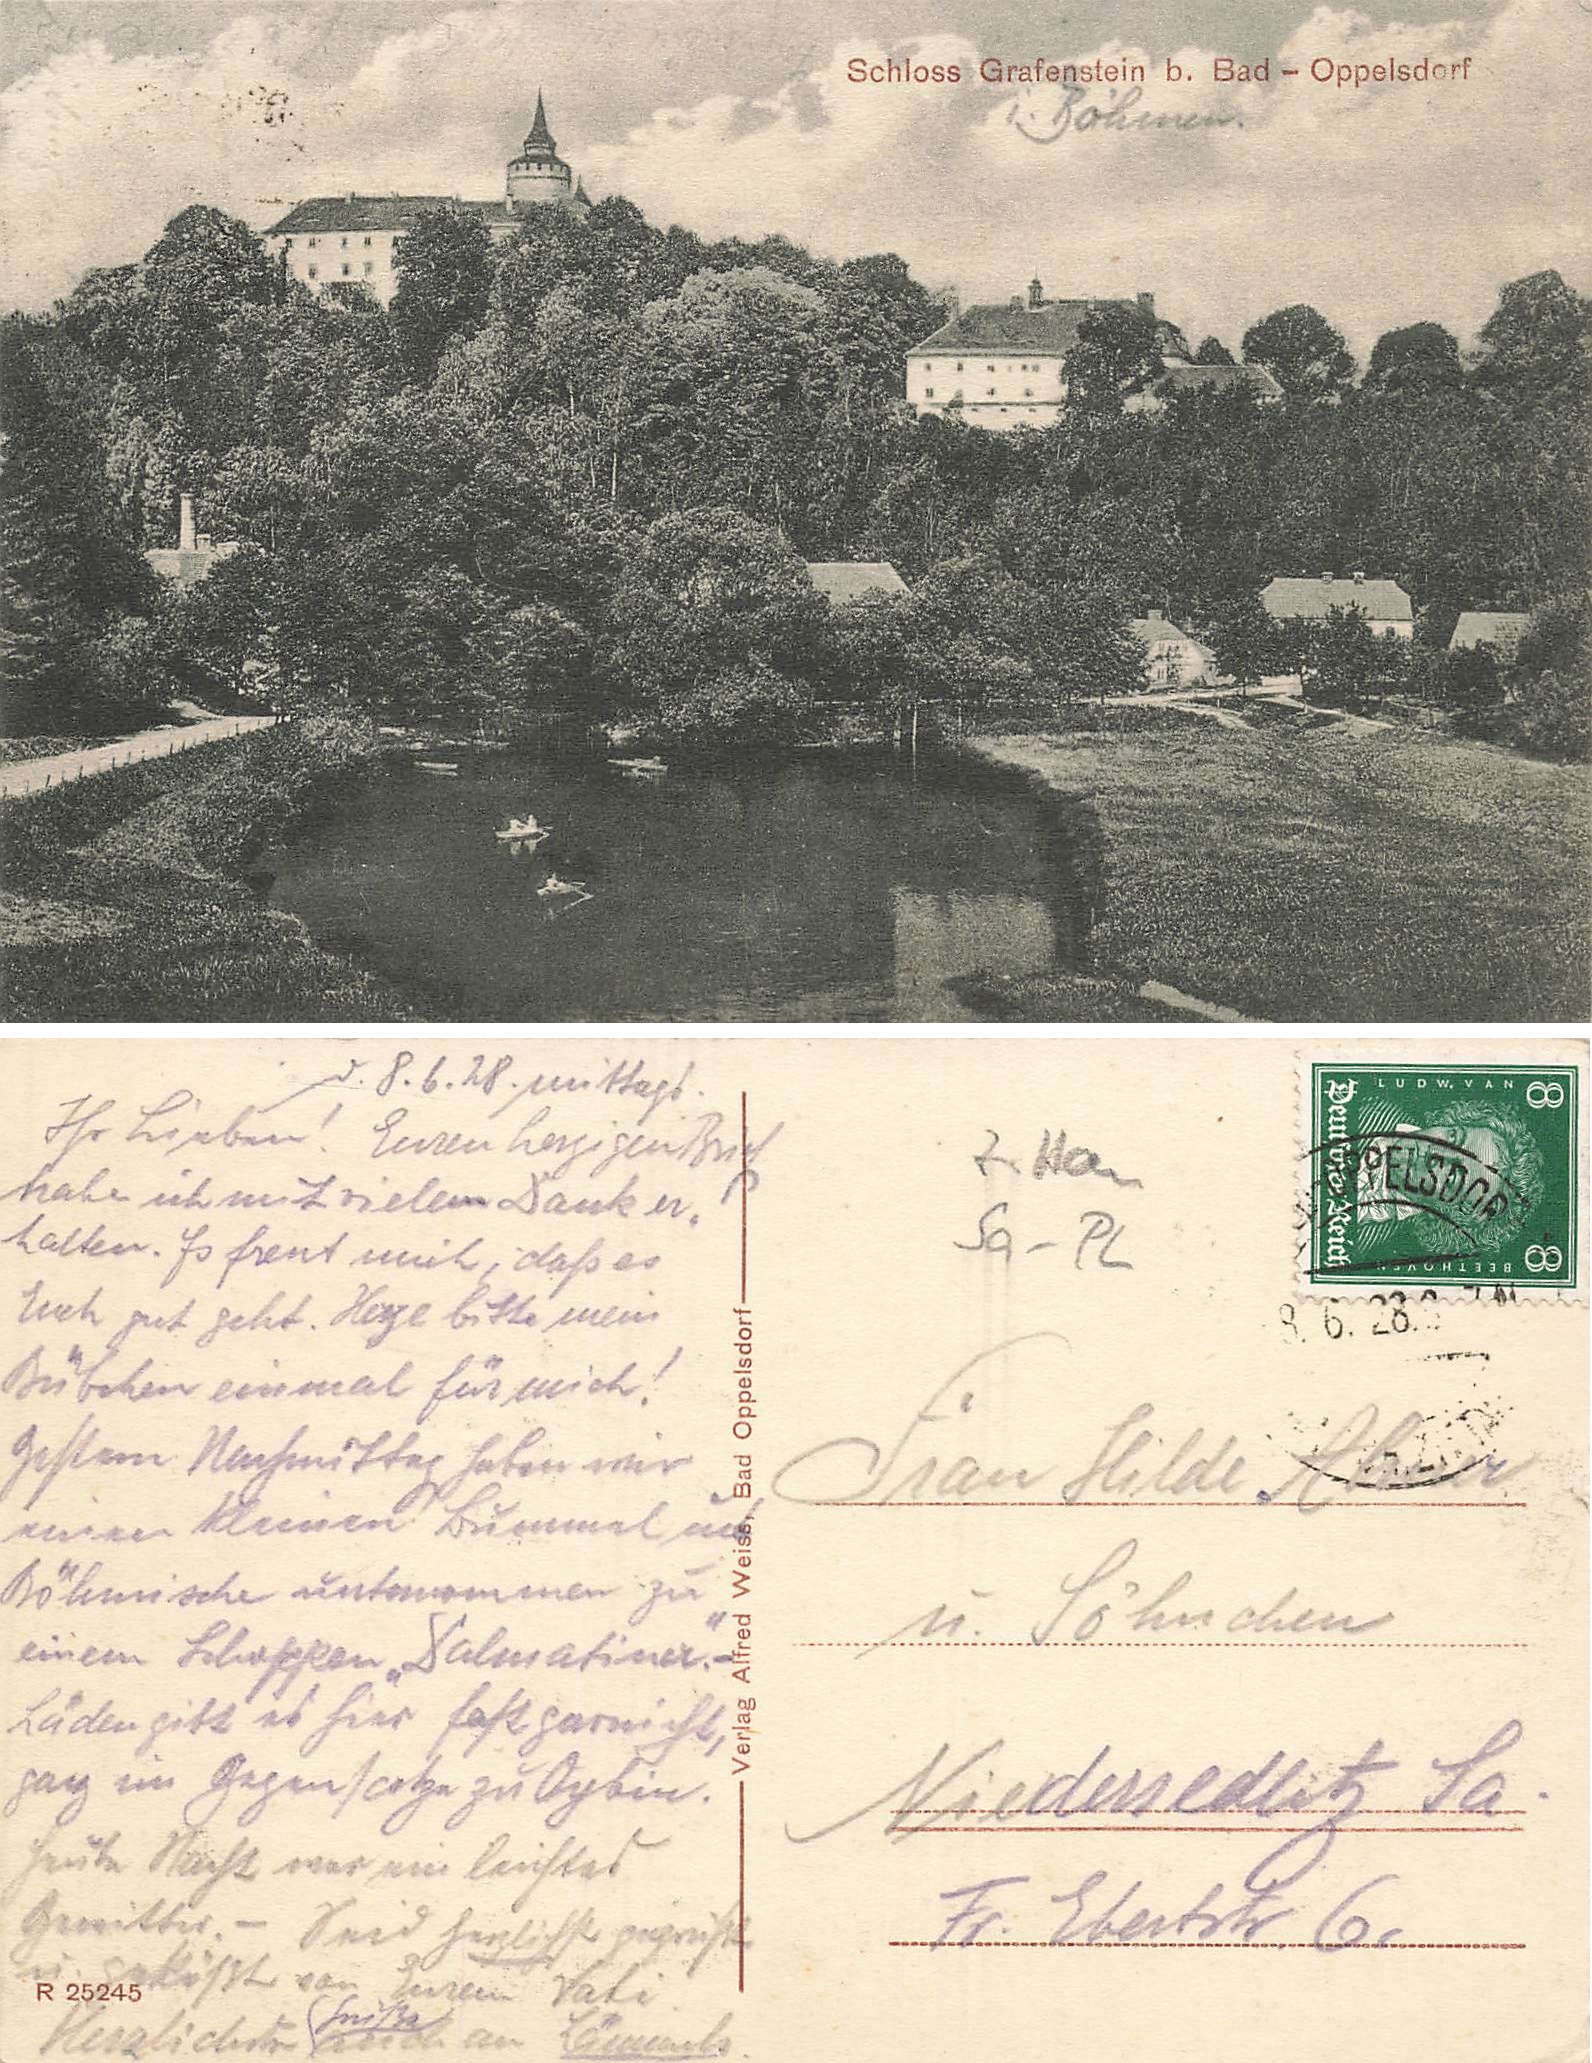 Schloss Grafenstein b. Bad - Oppelsdorf
i. Böhmen.
d. 8.6.28. mittags.
Ihr Lieben! Euren herzigen Brief
habe ich mit vielem Dank er-
halten. Es freut mich, daß es
Euch gut geht. Herze bitte mein
Bübchen einmal für mich!
Gestern Nachmittag haben wir
einen kleinen Bummel ins
Böhmische unternommen zu
einem Schoppen „Dalmatiner“.-
Läden gibt es hier fast garnicht,
ganz im Gegensatze zu Oybin.
Heute Nacht war ein leichtes
Gewitter. - Seid herzlichst gegrüßt
u. geküßt von Eurem Vati
Herzlichste Grüße auch an Lämmels.
R 25245
Verlag Alfred Weiss, Bad Oppelsdorf
Sa - PL
LUDW. VAN
BEETHOVEN
Deutsches Reich
8
8
OPPELSDORF
8. 6. 28.
Frau Hilde
u. Söhnchen
Niedersedlitz Sa.
Fr. Ebertstr. 6.